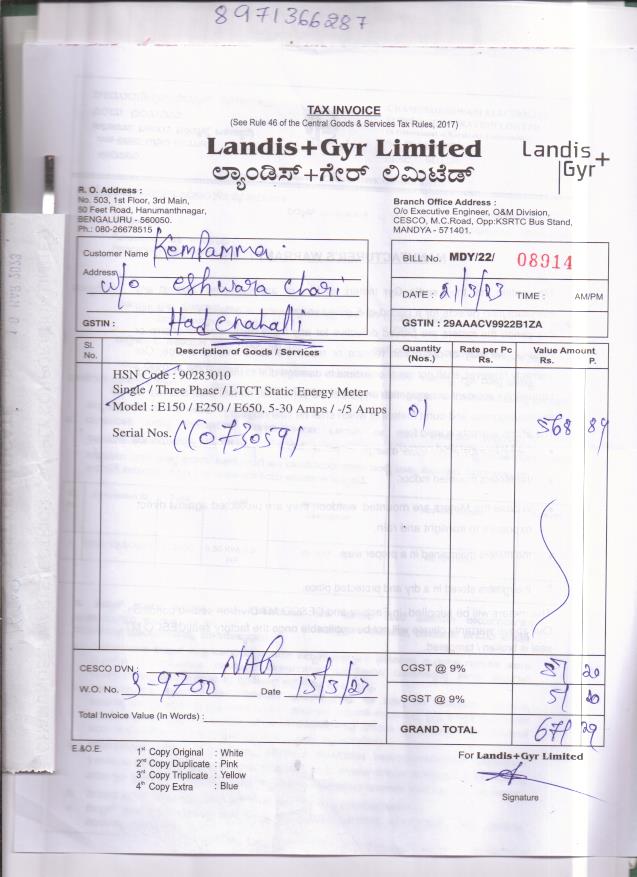 8971366287
TAX INVOICE
(See Rule 46 of the Central Goods & Services Tax Rules, 2017)
Landis+Gyr Limited
ಲ್ಯಾಂಡಿಸ್+ಗೇರ್ ಲಿಮಿಟೆಡ್
Landis+
Gyr
R. O. Address :
No. 503, 1st Floor, 3rd Main,
50 Feet Road, Hanumanthnagar,
BENGALURU - 560050.
Ph.: 080-26678515
Branch Office Address :
O/o Executive Engineer, O&M Division,
CESCO, M.C.Road, Opp:KSRTC Bus Stand,
MANDYA - 571401.
Customer Name Kempamma
Address w/o Eshwara Chari
GSTIN : Hadenahalli
BILL No. MDY/22/ 08914
DATE : 21/3/23 TIME : AM/PM
GSTIN : 29AAACV9922B1ZA
Sl. No. Description of Goods / Services Quantity (Nos.) Rate per Pc Rs. Value Amount Rs. P.
HSN Code : 90283010
Single / Three Phase / LTCT Static Energy Meter
Model : E150 / E250 / E650, 5-30 Amps / -/5 Amps 01 568 89
Serial Nos.
CESCO DVN :
W.O. No. Date
Total Invoice Value (In Words) :
CGST @ 9% 51 20
SGST @ 9% 51 20
GRAND TOTAL 671 29
E.&O.E.
1st Copy Original : White
2nd Copy Duplicate : Pink
3rd Copy Triplicate : Yellow
4th Copy Extra : Blue
For Landis+Gyr Limited
Signature